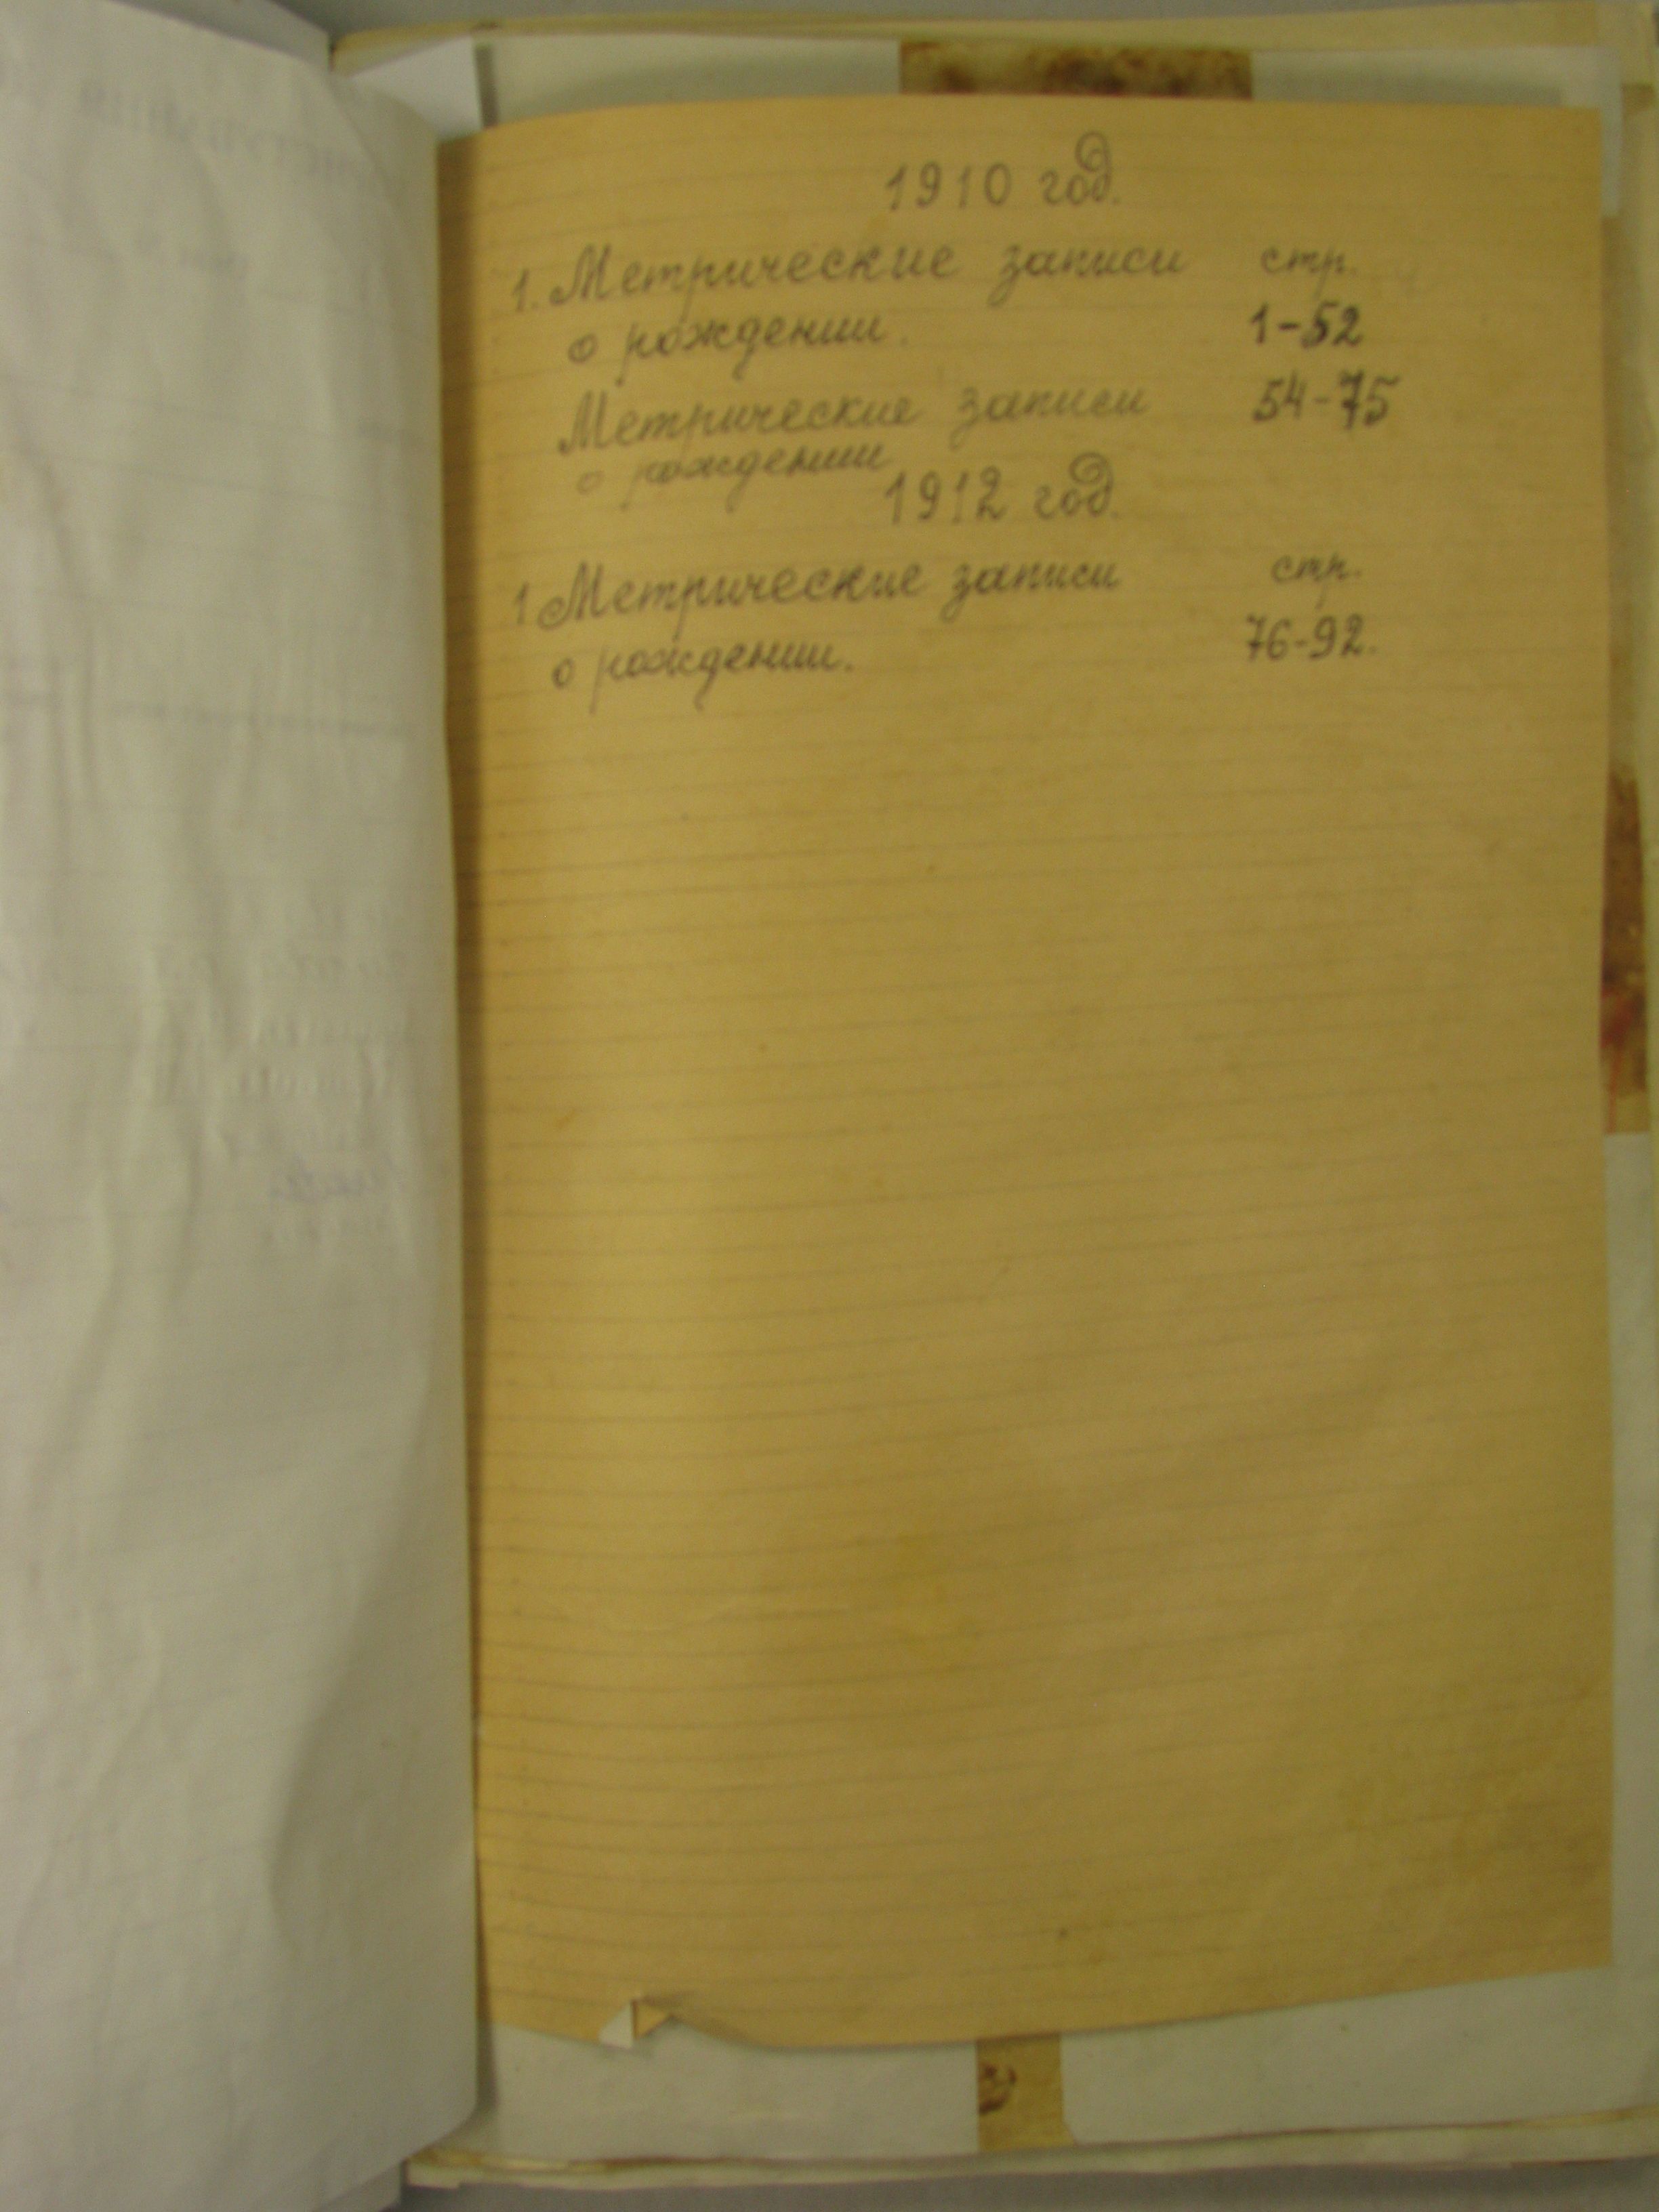 1910 год.
1. Метрические записи стр.
о рождении. 1-52
Метрические записи 54-75
о рождении
1912 год.
1 Метрические записи стр.
о рождении. 76-92.